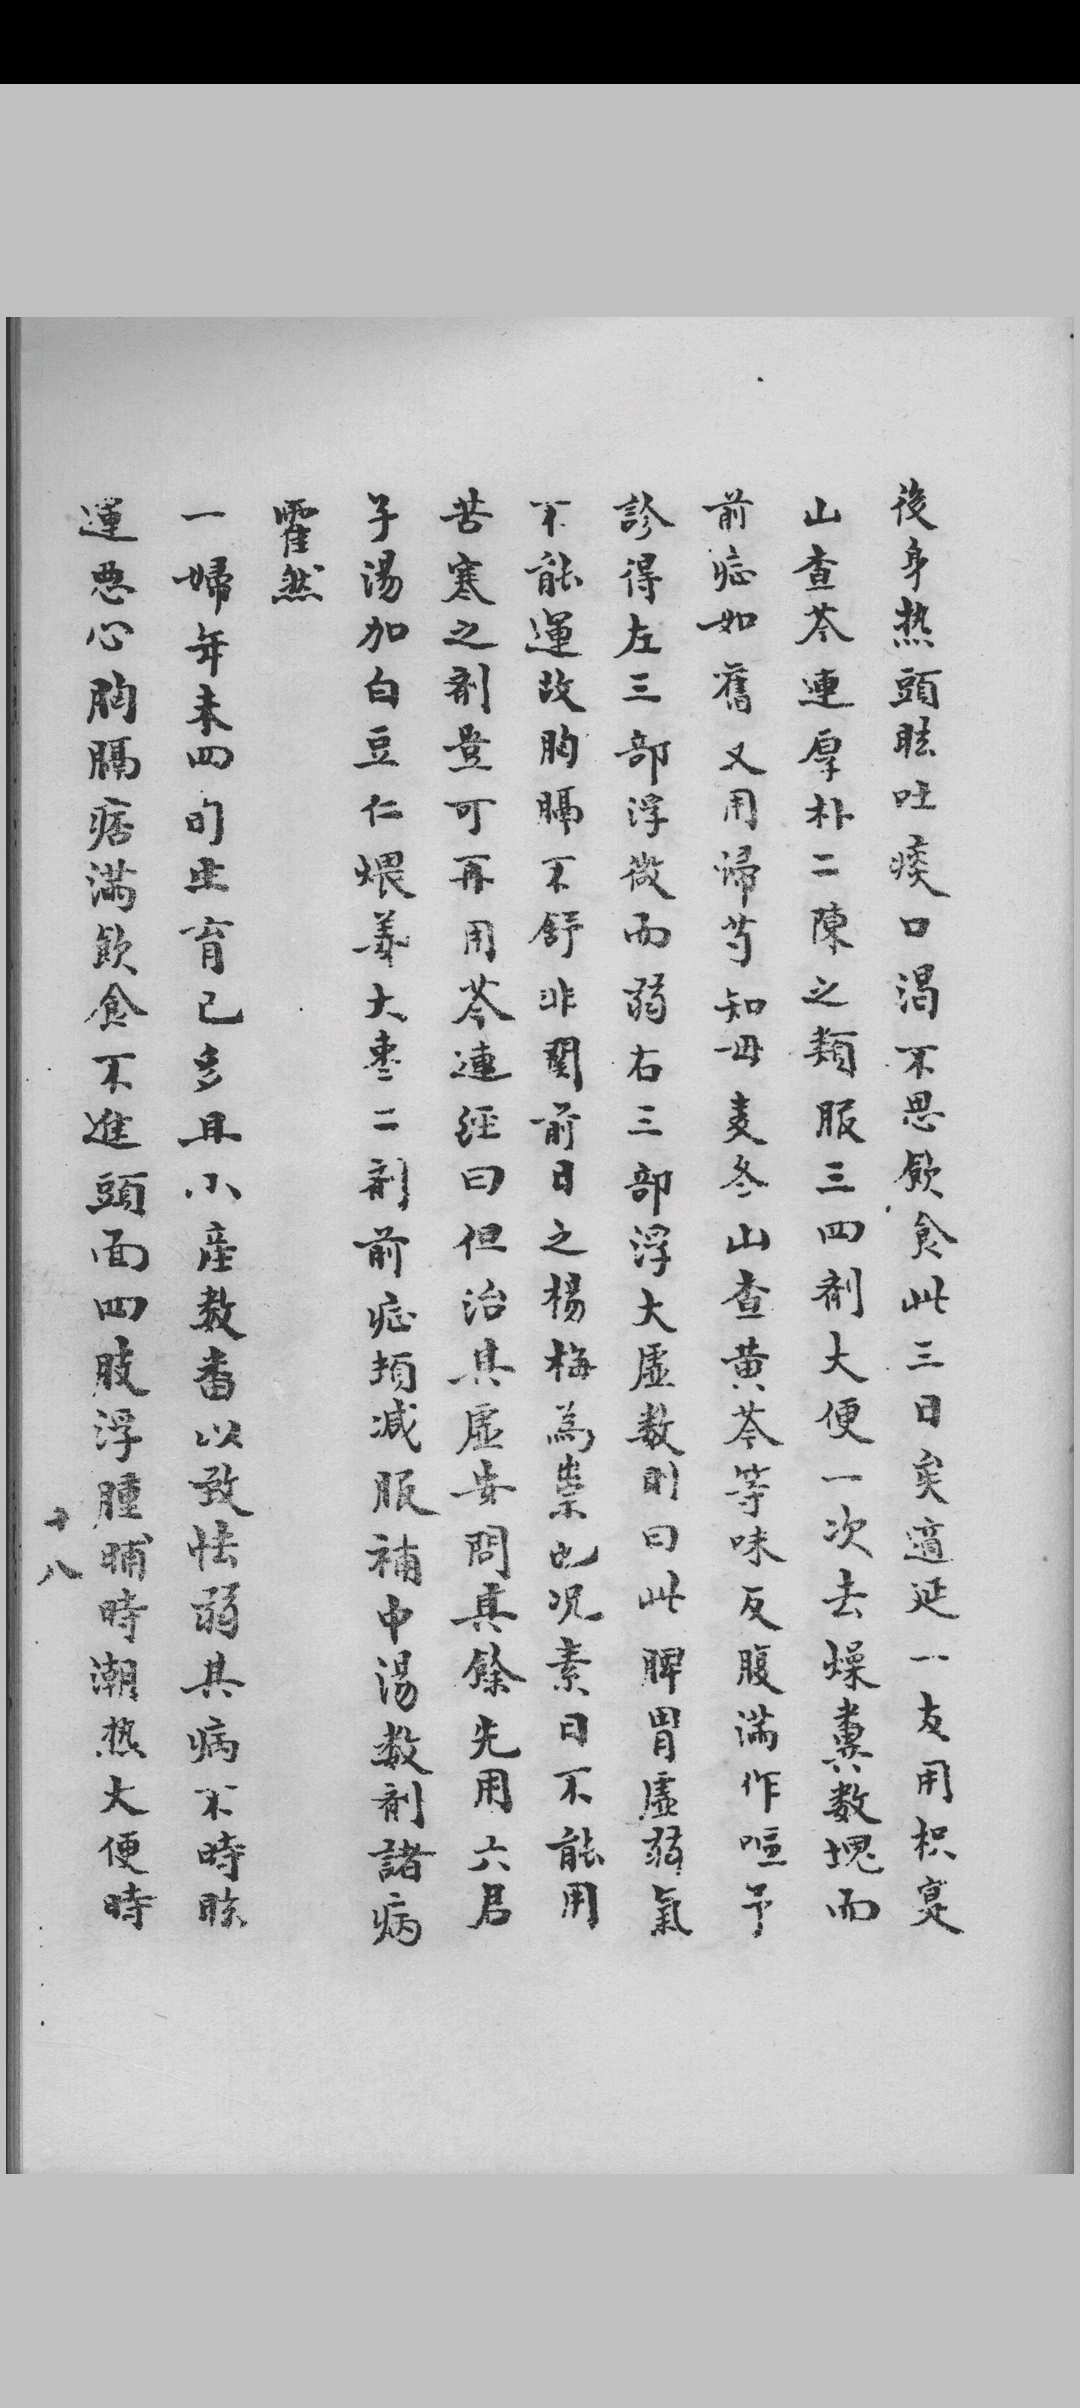 後身热頭眩吐痰口渴不思飲食此三日矣適延一友用枳寔
山查芩連厚朴二陳之類服三四剤大便一次去燥糞数塊而
前症如舊又用歸芍知毋麦冬山查黄芩等味反腹満作嘔予
診得左三部浮微而弱右三部浮大虚数則曰此脾胃虚弱氣
不能運故胸膈不舒非関前日之楊梅為祟也况素日不能用
苦寒之剤豈可再用芩連経曰但治其虚安問其餘先用六君
子湯加白豆仁煨姜大棗二剤前症頓减服補中湯数剤諸病
霍然
一婦年未四旬生育已多且小産数番以致怯弱其病不時眩
運悪心胸膈痞満飲食不進頭面四肢浮腫晡時潮热大便時
十八